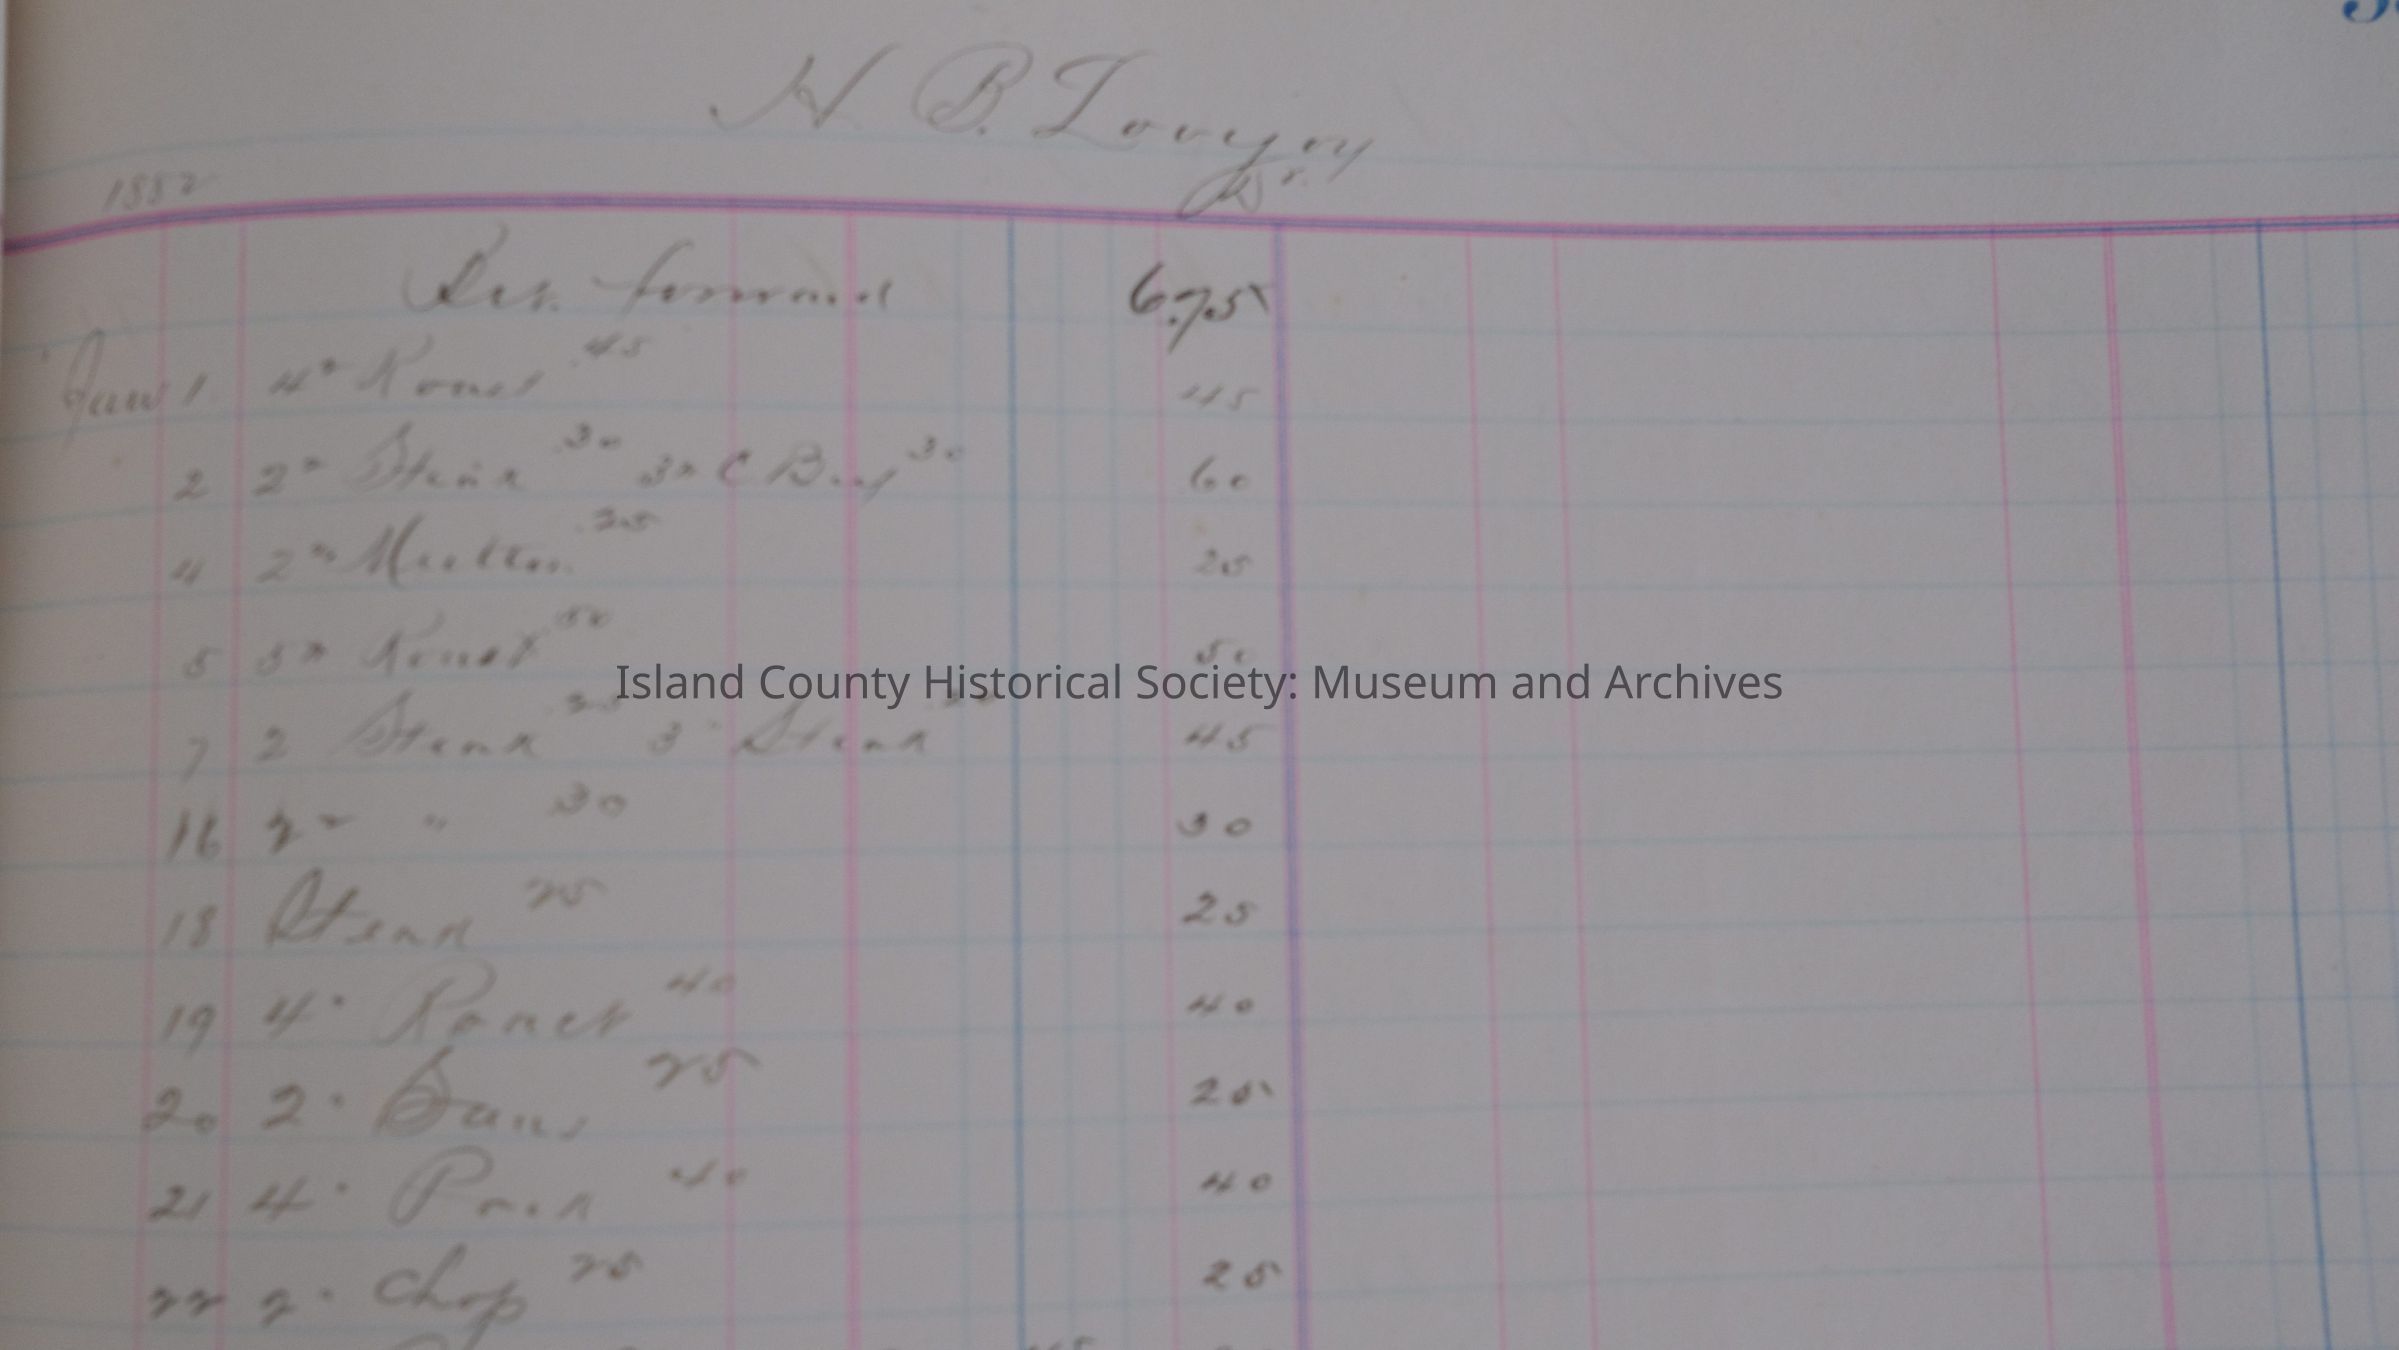 H. B. Lovejoy
Dr.
1882
forward 6.75
June 1 4" Roast 45 45
2 2" Steak 30 3" C Beef 30 60
4 2" Mutton 25 25
5 5" Roast 50 50
Island County Historical Society: Museum and Archives
7 2 Steak 25 3" Steak 45
16 2" " 30 30
18 Steak 25 25
19 4" Roast 40 40
20 2" 25 25
21 4" Pork 40 40
22 2" Chop 25 25